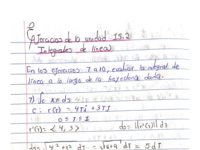 Ejercicios de la unidad 15.2
Integrales de línea
En los ejercicios 7 a 10, evaluar la integral de
línea a lo largo de la trayectoria dada.
7) ∫c xy ds
C: r(t) = 4ti + 3tj
0 ≤ t ≤ 1
r'(t) = <4, 3> ds = ||r'(t)|| dt
ds = √4² + 3² dt = dt = 5 dt